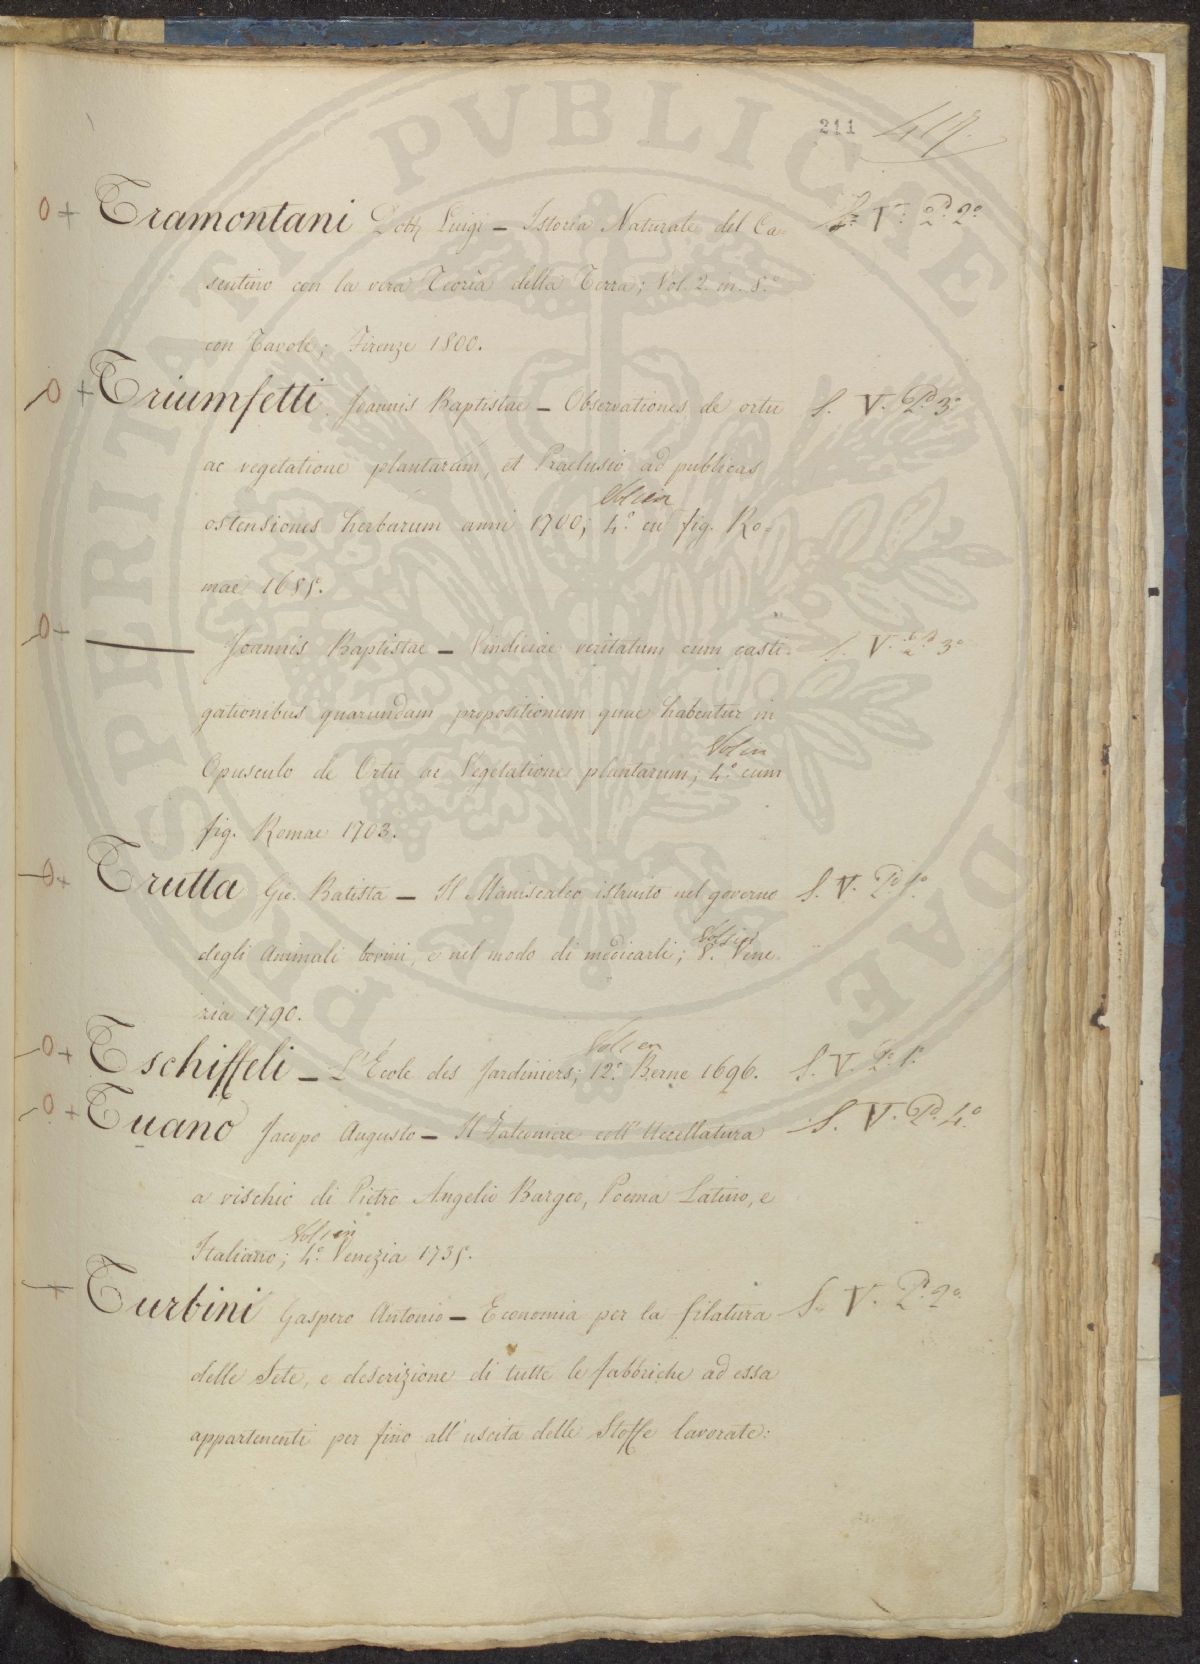 PROSPERITATI PVBLICAE AVGENDAE
211 419.
0+ Tramontani Dott. Luigi – Istoria Naturale del Ca= S. V. P. 2.°
sentino con la vera Teoria della Terra; Vol. 2. in 8.°
con Tavole; Firenze 1800.
0+ Triumfetti Joannis Baptistae – Observationes de ortu S. V. P. 3.°
ac vegetatione plantarum, et Praelusio ad publicas
Vol. in
ostensiones herbarum anni 1700; 4.° cu fig. Ro=
mae 1685.
0+ Joannis Baptistae – Vindiciae veritatum cum casti= S. V. P. 3.°
gationibus quarundam propositionum quae habentur in
Vol. in
Opusculo de Ortu ac Vegetatione plantarum; 4.° cum
fig. Romae 1703.
0+ Trutta Gio. Batista – Il Maniscalco istruito nel governo S. V. P. 1.°
Vol. in
degli Animali bovini, e nel modo di medicarli; 8.° Vene=
zia 1790.
Vol. en
0+ Tschiffeli – L'École des Jardiniers; 12.° Berne 1696. S. V. P. 1.°
0+ Tuano Jacopo Augusto – Il Falconiere coll' Uccellatura S. V. P. 4.°
a vischio di Pietro Angelio Bargeo, Poema Latino, e
Vol. in
Italiano; 4.° Venezia 1735.
+ Turbini Gaspero Antonio – Economia per la filatura S. V. P. 2.°
delle Sete, e descrizione di tutte le fabbriche ad essa
appartenenti per fino all' uscita delle Stoffe lavorate: